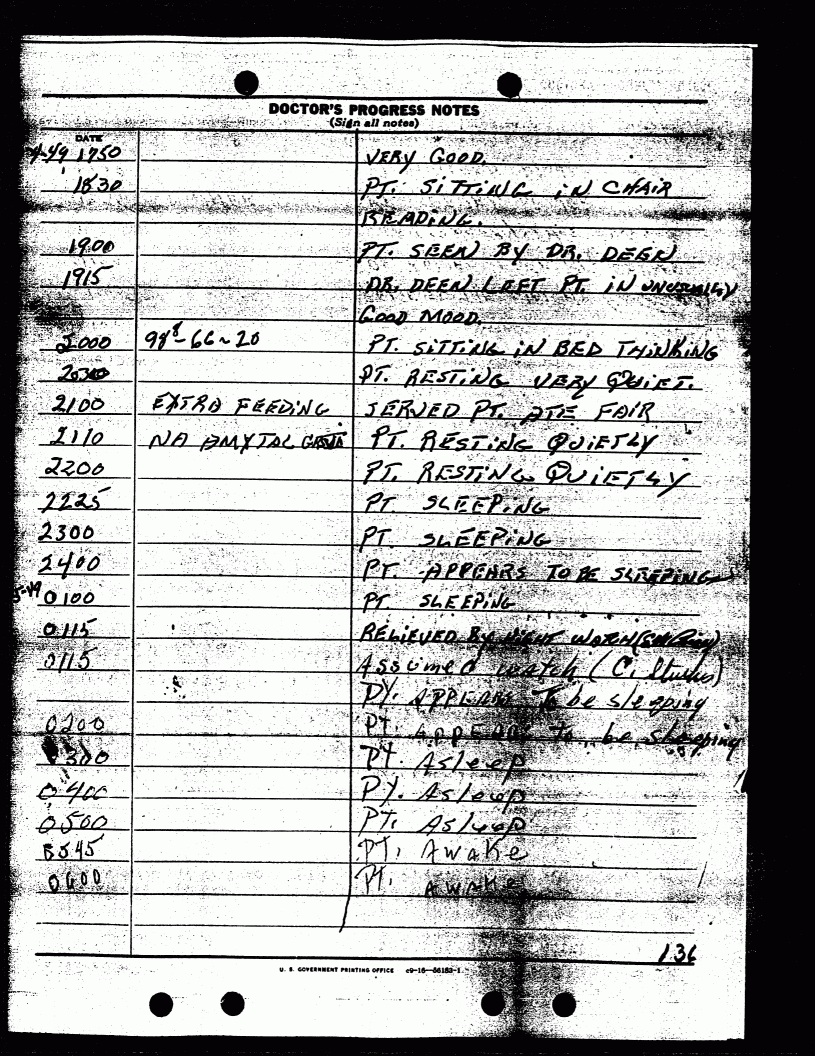 DOCTOR'S PROGRESS NOTES
(Sign all notes)
DATE
4-49 1750 VERY GOOD.
1830 PT. SITTING IN CHAIR
READING.
1900 PT. SEEN BY DR. DEEN
1915 DR. DEEN LEFT PT. IN UNUSUALLY
GOOD MOOD.
2000 98⁸-66~20 PT. SITTING IN BED THINKING
2030 PT. RESTING VERY QUIET.
2100 EXTRA FEEDING SERVED PT. ATE FAIR
2110 NA AMYTAL PT. RESTING QUIETLY
2200 PT. RESTING QUIETLY
2225 PT. SLEEPING
2300 PT. SLEEPING
2400 PT. APPEARS TO BE SLEEPING
5-49 0100 PT SLEEPING
0115 RELIEVED BY NIGHT WATCH
0115 Assumed watch
PT. APPEARS To be sleeping
0200 PT. APPEARS To be sleeping
0300 PT. Asleep
0400 PT. Asleep
0500 PT. Asleep
0545 PT. Awake
0600 PT. Awake
136
U. S. GOVERNMENT PRINTING OFFICE c9-16—56152-1